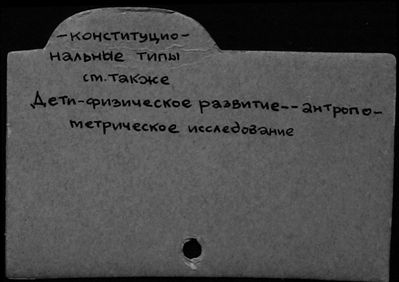 -конституцио-
нальные типы
см. также
Дети-физическое развитие--антропо-
метрическое исследование